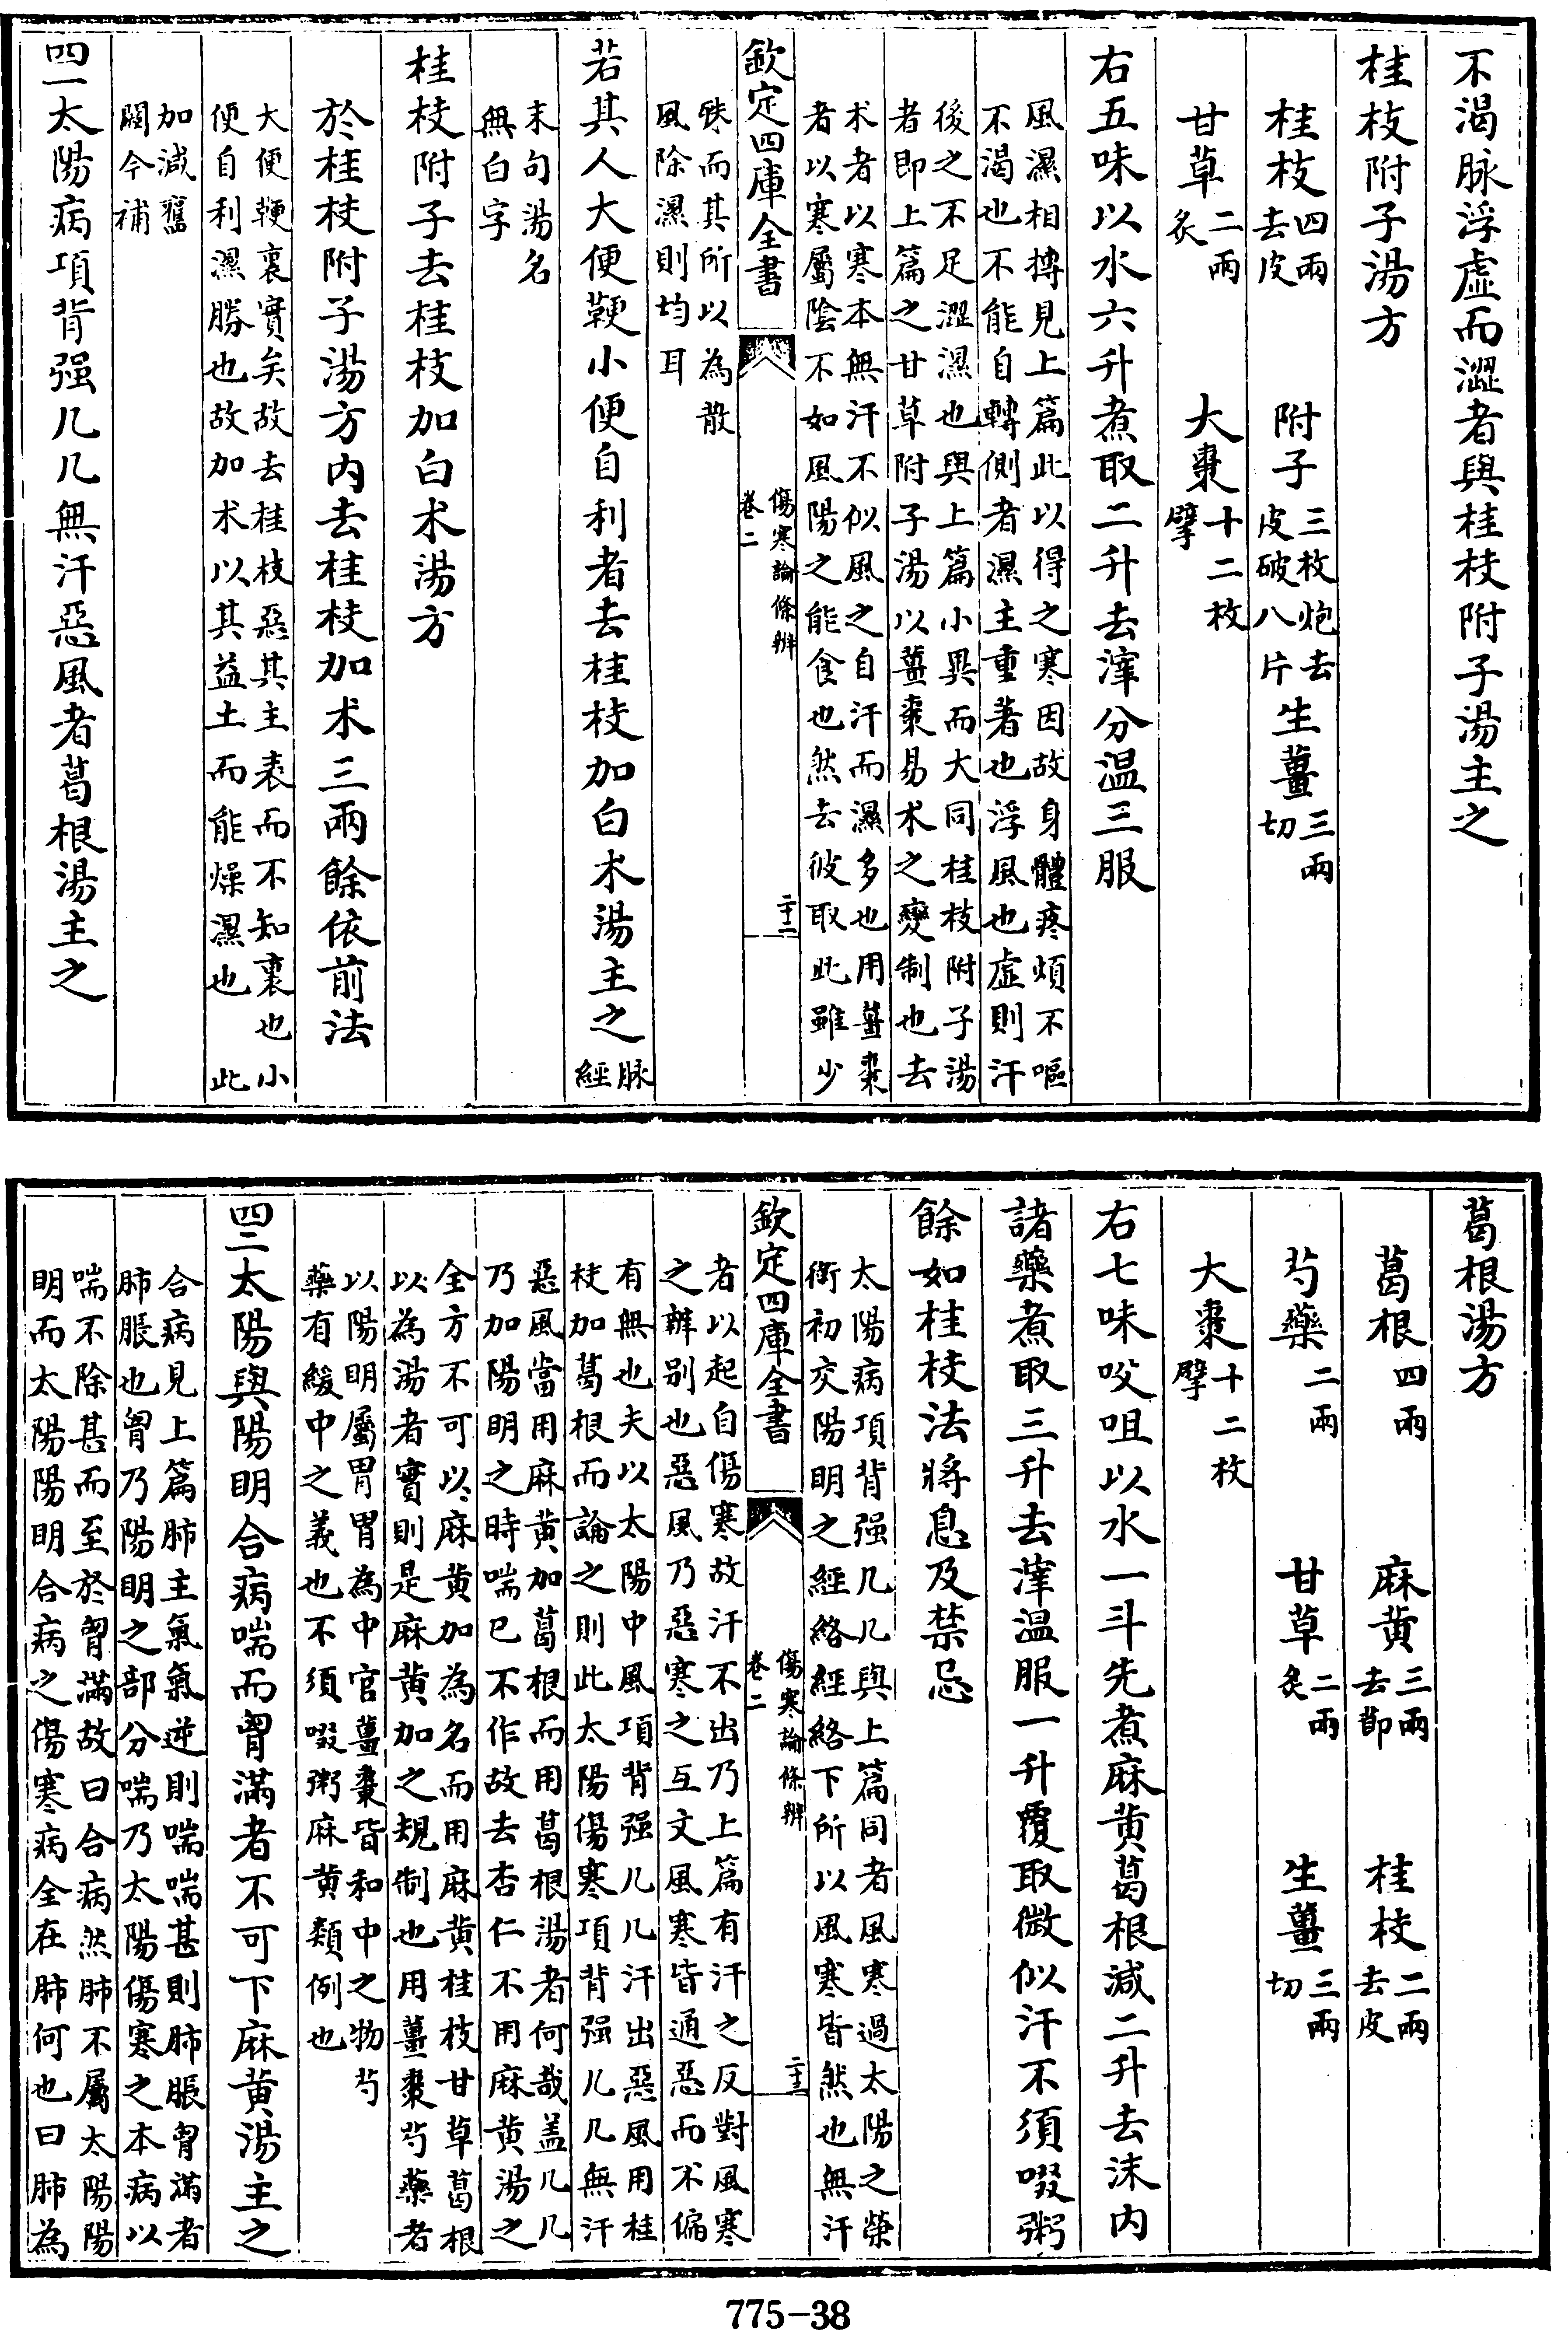 不渴脉浮虚而澀者與桂枝附子湯主之
桂枝附子湯方
桂枝四兩去皮 附子三枚炮去皮破八片 生薑三兩切
甘草二兩炙 大棗十二枚擘
右五味以水六升煮取二升去滓分温三服
風濕相摶見上篇此以得之寒因故身體疼煩不嘔
不渴也不能自轉側者濕主重著也浮風也虚則汗
後之不足澀濕也與上篇小異而大同桂枝附子湯
者即上篇之甘草附子湯以薑棗易术之變制也去
术者以寒本無汗不似風之自汗而濕多也用薑棗
者以寒屬陰不如風陽之能食也然去彼取此雖少
欽定四庫全書
傷寒論條辨
卷二
二十二
殊而其所以為散
風除濕則均耳
若其人大便鞕小便自利者去桂枝加白术湯主之脉經
末句湯名
無白字
桂枝附子去桂枝加白术湯方
於桂枝附子湯方内去桂枝加术三兩餘依前法
大便鞕裏實矣故去桂枝惡其主表而不知裏也小
便自利濕勝也故加术以其益土而能燥濕也 此
加減舊
闕今補
四一太陽病項背强几几無汗惡風者葛根湯主之
葛根湯方
葛根四兩 麻黄三兩去節 桂枝二兩去皮
芍藥二兩 甘草二兩炙 生薑三兩切
大棗十二枚擘
右七味㕮咀以水一斗先煮麻黄葛根減二升去沫内
諸藥煮取三升去滓温服一升覆取微似汗不須啜粥
餘如桂枝法將息及禁忌
太陽病項背强几几與上篇同者風寒過太陽之榮
衛初交陽明之經絡經絡下所以風寒皆然也無汗
欽定四庫全書
傷寒論條辨
卷二
二十三
者以起自傷寒故汗不出乃上篇有汗之反對風寒
之辨别也惡風乃惡寒之互文風寒皆通惡而不偏
有無也夫以太陽中風項背强几几汗出惡風用桂
枝加葛根而論之則此太陽傷寒項背强几几無汗
惡風當用麻黄加葛根而用葛根湯者何哉盖几几
乃加陽明之時喘已不作故去杏仁不用麻黄湯之
全方不可以麻黄加為名而用麻黄桂枝甘草葛根
以為湯者實則是麻黄加之規制也用薑棗芍藥者
以陽明屬胃胃為中官薑棗皆和中之物芍
藥有緩中之義也不須啜粥麻黄類例也
四二太陽與陽明合病喘而胷滿者不可下麻黄湯主之
合病見上篇肺主氣氣逆則喘喘甚則肺脹胷滿者
肺脹也胷乃陽明之部分喘乃太陽傷寒之本病以
喘不除甚而至於胷滿故曰合病然肺不屬太陽陽
明而太陽陽明合病之傷寒病全在肺何也曰肺為
775-38